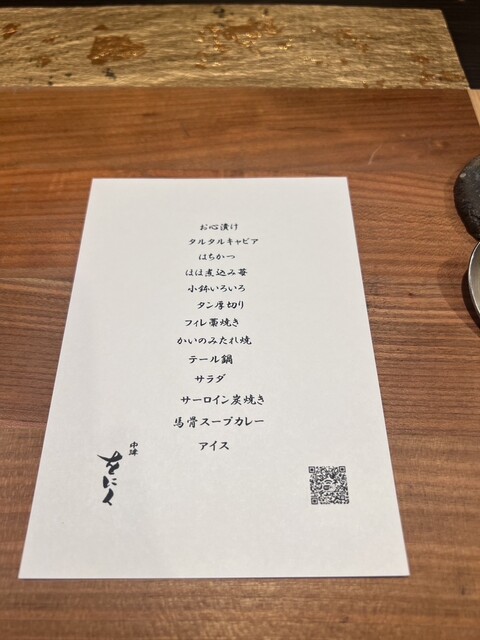 お心漬け
タルタルキャビア
はちかつ
はほ煮込み箸
小鉢いろいろ
タン厚切り
フィレ藁焼き
かいのみたれ焼
テール鍋
サラダ
サーロイン炭焼き
馬骨スープカレー
アイス
中津
をにく